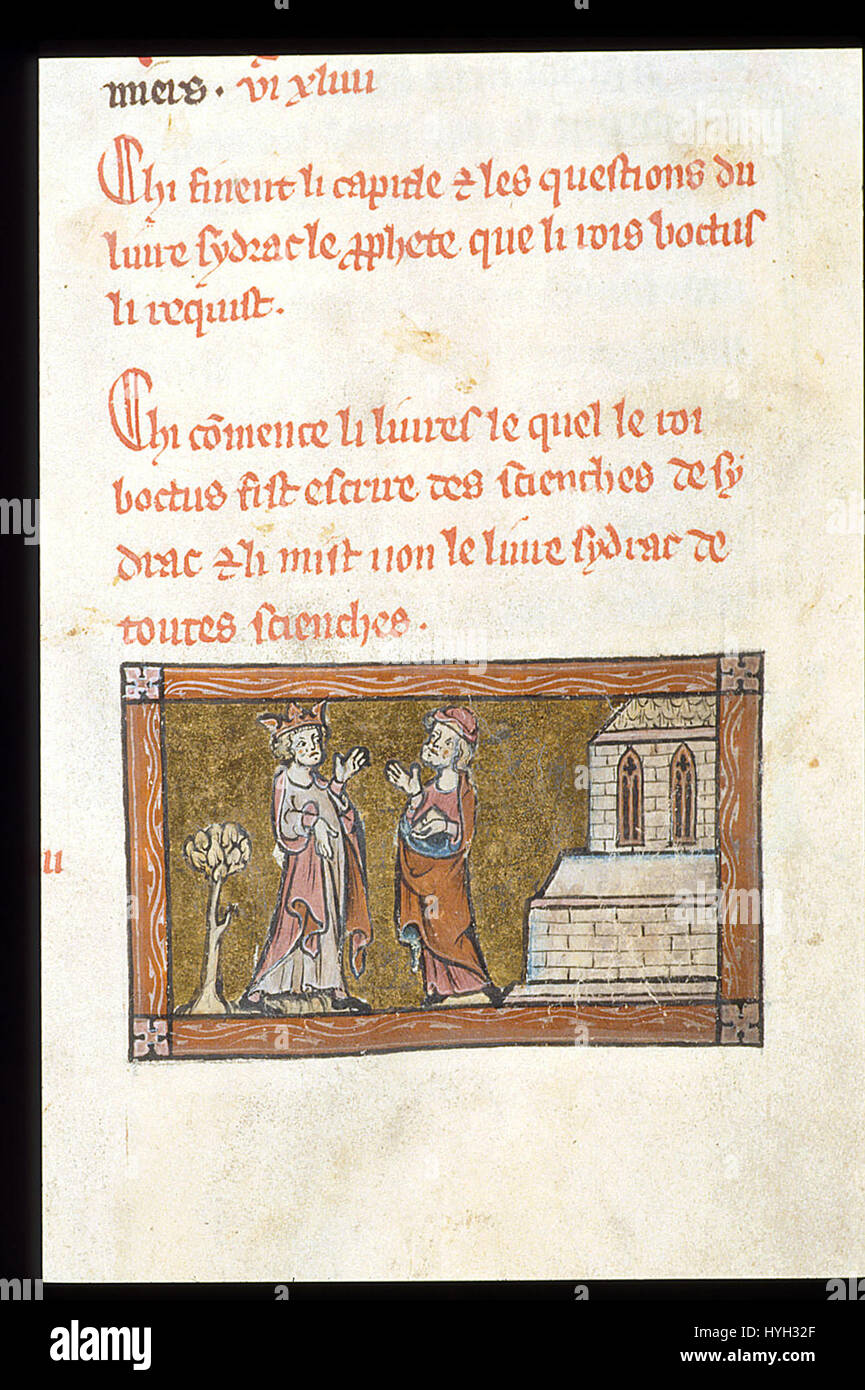 miers. vi xliiii
Chi finent li capitle ⁊ les questions du
livre sydrac le prophete que li rois boctus
li requist.
Chi cōmence li livres le quel le roi
boctus fist escrire des scienches de sy
drac ⁊ li mist non le livre sydrac de
toutes scienches.
alamy
Image ID: JYH32F
www.alamy.com